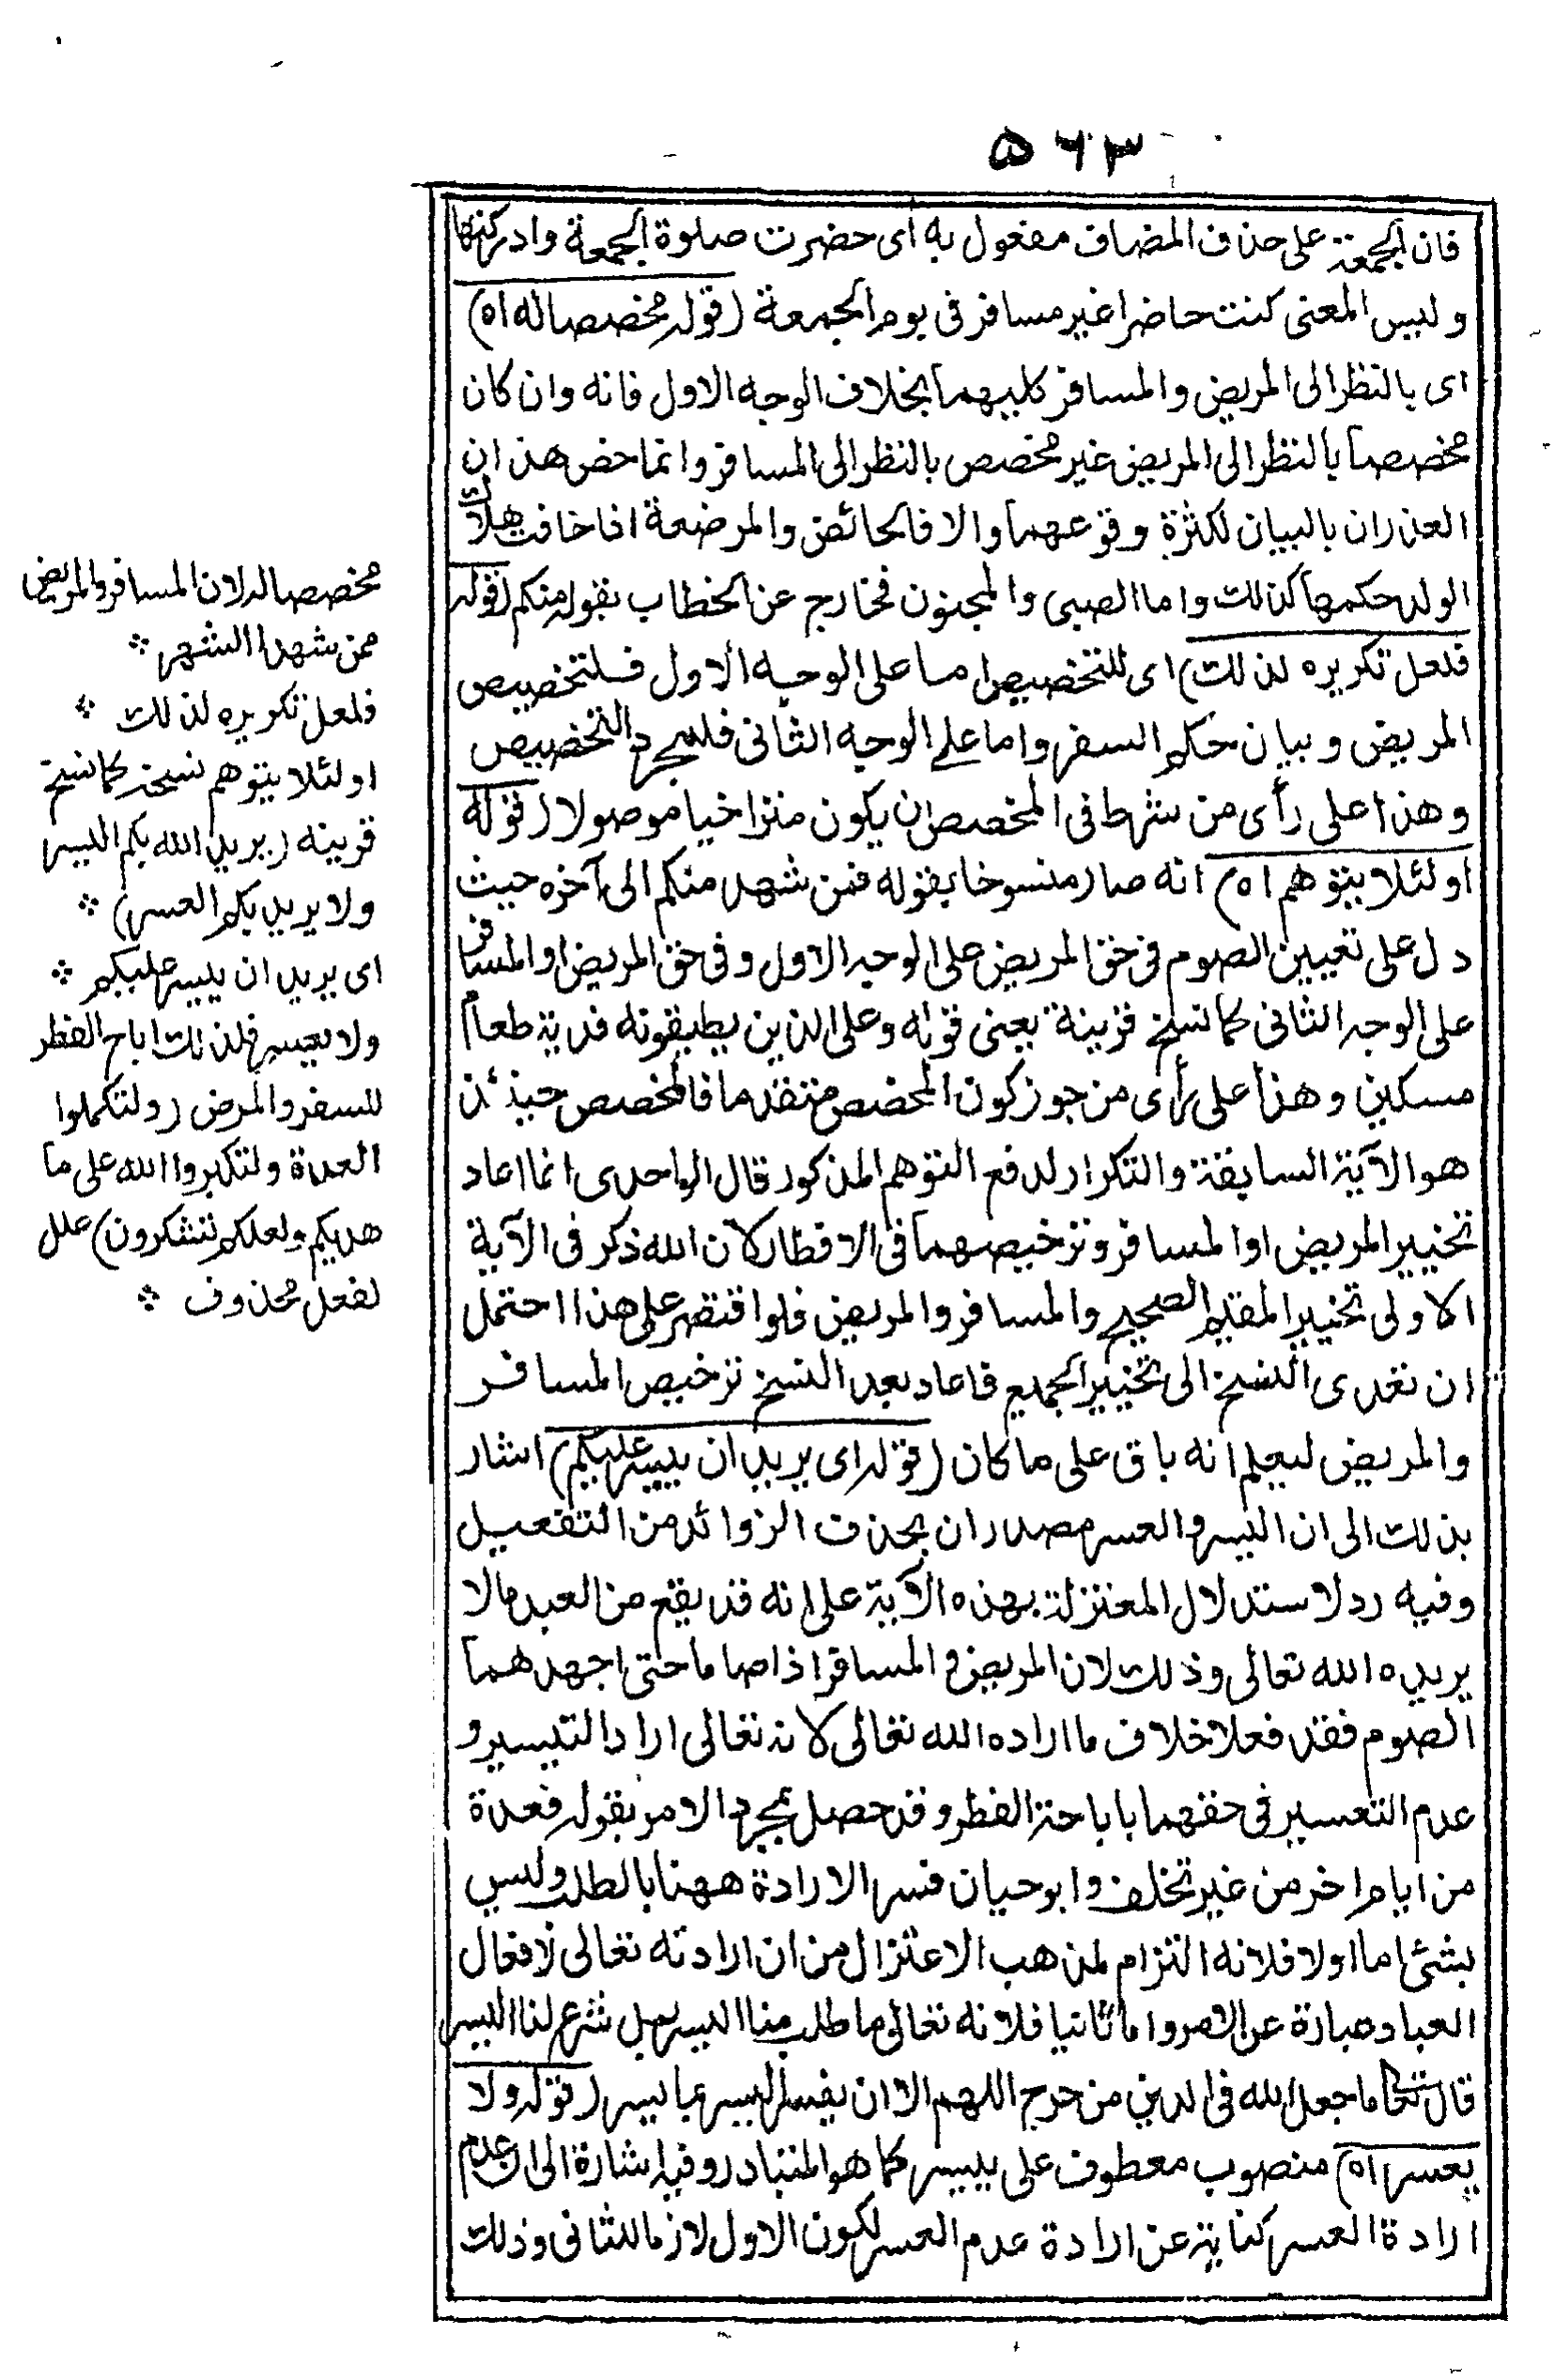 ۵۶۳
فان الجمعة على حذف المضاف مفعول به اى حضرت صلوة الجمعة وادركتها
وليس المعنى كنت حاضرا غير مسافر فى يوم الجمعة (قوله مخصصا له اه)
اى بالنظر الى المريض والمسافر كليهما بخلاف الوجه الاول فانه وان كان
مخصصا بالنظر الى المريض غير مخصص بالنظر الى المسافر وانما خص هذان
العذران بالبيان لكثرة وقوعهما والا فالحائض والمرضعة اذا خافت هلاك
الولد حكمها كذلك واما الصبى والمجنون فخارج عن الخطاب بقوله منكم (قوله
فلعل تكريره لذلك) اى للتخصيص اما على الوجه الاول فلتخصيص
المريض وبيان حكم السفر واما على الوجه الثانى فلمجرد التخصيص
وهذا على رأى من شرط فى المخصص ان يكون متراخيا موصولا (قوله
او لئلا يتوهم اه) انه صار منسوخا بقوله فمن شهد منكم الى آخره حيث
دل على تعيين الصوم فى حق المريض على الوجه الاول وفى حق المريض او المسافر
على الوجه الثانى كما نسخ قرينة يعنى قوله وعلى الذين يطيقونه فدية طعام
مسكين وهذا على رأى من جوز كون المخصص متقدما فالمخصص حينئذ
هو الآية السابقة والتكرار لدفع التوهم المذكور قال الواحدى انما اعاد
تخيير المريض او المسافر وترخيصهما فى الافطار لان الله ذكر فى الآية
الاولى تخيير المقيم الصحيح والمسافر والمريض فلو اقتصر على هذا احتمل
ان تعدى النسخ الى تخيير الجميع فاعاد بعد النسخ ترخيص المسافر
والمريض ليعلم انه باق على ما كان (قوله اى يريد ان ييسر عليكم) اشار
بذلك الى ان اليسر والعسر مصدران بحذف الزوائد من التفعيل
وفيه رد لاستدلال المعتزلة بهذه الآية على انه قد يقع من العبد مالا
يريده الله تعالى وذلك لان المريض والمسافر اذا صاما حتى اجهدهما
الصوم فقد فعلا خلاف ما اراده الله تعالى لانه تعالى اراد التيسير و
عدم التعسير فى حقهما باباحة الفطر وقد حصل بمجرد الامر بقوله فعدة
من ايام اخر من غير تخلف وابو حيان فسر الارادة ههنا بالطلب وليس
بشئ اما اولا فلانه التزام لمذهب الاعتزال من ان ارادته تعالى لافعال
العباد عبارة عن الامر واما ثانيا فلانه تعالى ما طلب منا اليسر بل شرع لنا اليسر
قال تعالى ما جعل الله فى الدين من حرج اللهم الا ان يفسر اليسر بما ييسر (قوله ولا
يعسر اه) منصوب معطوف على ييسر كما هو المتبادر وفيه اشارة الى ان عدم
ارادة العسر كناية عن ارادة عدم العسر لكون الاول لازما للثانى وذلك
مخصصا له لان المسافر والمريض
ممن شهد الشهر
فلعل تكريره لذلك
او لئلا يتوهم نسخه كما نسخ
قرينه (يريد الله بكم اليسر
ولا يريد بكم العسر)
اى يريد ان ييسر عليكم
ولا يعسر فلذلك اباح الفطر
للسفر والمرض (ولتكملوا
العدة ولتكبروا الله على ما
هديكم ولعلكم تشكرون) علل
لفعل محذوف